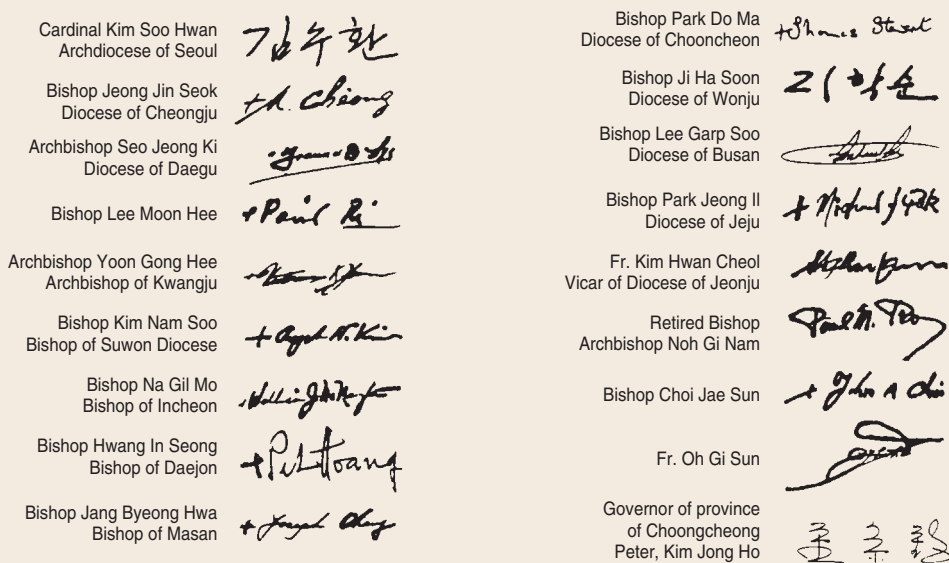 Cardinal Kim Soo Hwan
Archdiocese of Seoul
김수환
Bishop Jeong Jin Seok
Diocese of Cheongju
+A. Cheong
Archbishop Seo Jeong Ki
Diocese of Daegu
Bishop Lee Moon Hee
+Paul Ri
Archbishop Yoon Gong Hee
Archbishop of Kwangju
Bishop Kim Nam Soo
Bishop of Suwon Diocese
N. Kim
Bishop Na Gil Mo
Bishop of Incheon
Bishop Hwang In Seong
Bishop of Daejon
Hoang
Bishop Jang Byeong Hwa
Bishop of Masan
+ Joseph
Bishop Park Do Ma
Diocese of Chooncheon
+Thomas Stewart
Bishop Ji Ha Soon
Diocese of Wonju
지학순
Bishop Lee Garp Soo
Diocese of Busan
Bishop Park Jeong Il
Diocese of Jeju
+ Michael
Fr. Kim Hwan Cheol
Vicar of Diocese of Jeonju
Retired Bishop
Archbishop Noh Gi Nam
Paul M. Ro
Bishop Choi Jae Sun
+ John A Choi
Fr. Oh Gi Sun
Governor of province
of Choongcheong
Peter, Kim Jong Ho